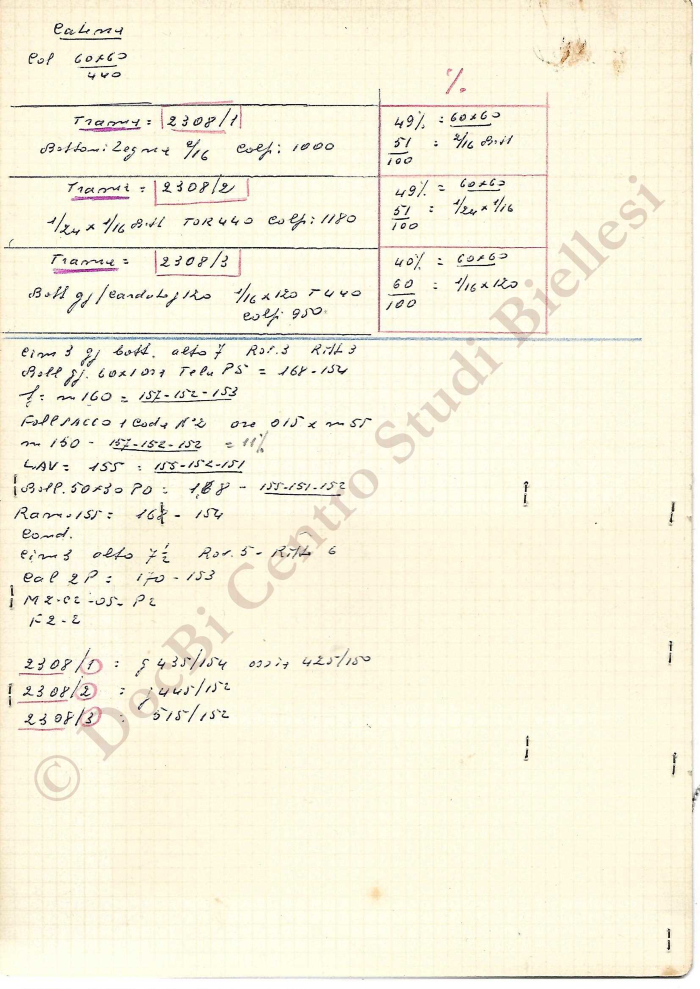 Catena
Col 60x60
440
%
Trama = 2308/1
Bottoni Legna 2/16 Colpi: 1000
49% = 60x60
51 = 2/16 Bott
100
Trama = 2308/2
1/24 x 1/16 Bott TOR 440 Colpi: 1180
49% = 60x60
51 = 1/24 x 1/16
100
Trama = 2308/3
Bott gj / Cardato 120 1/16 x 120 T 440
Colpi 950
40% = 60x60
60 = 1/16 x 120
100
Cim 3 gj bott. alto 7 Ror. 3 Ritt 3
Boll gj. 60x10 Telu P5 = 168 - 154
m 160 = 157-152-153
Foll PACCO 1 Coda N°2 ore 015 x m 55
m 150 - 157-152-152 = 11%
LAV = 155 = 155-152-151
Boll. 50x30 P0 = 168 - 155-151-152
Ramo 155 = 168 - 154
Cond.
Cim 3 alto 7 1/2 Ror. 5 - Ritt 6
Cal 2P = 170 - 153
M2-C2-05-P2
F2-2
2308/1 = g 435/154 ossia 425/150
2308/2 = g 445/152
2308/3 : 515/152
© DocBi Centro Studi Biellesi